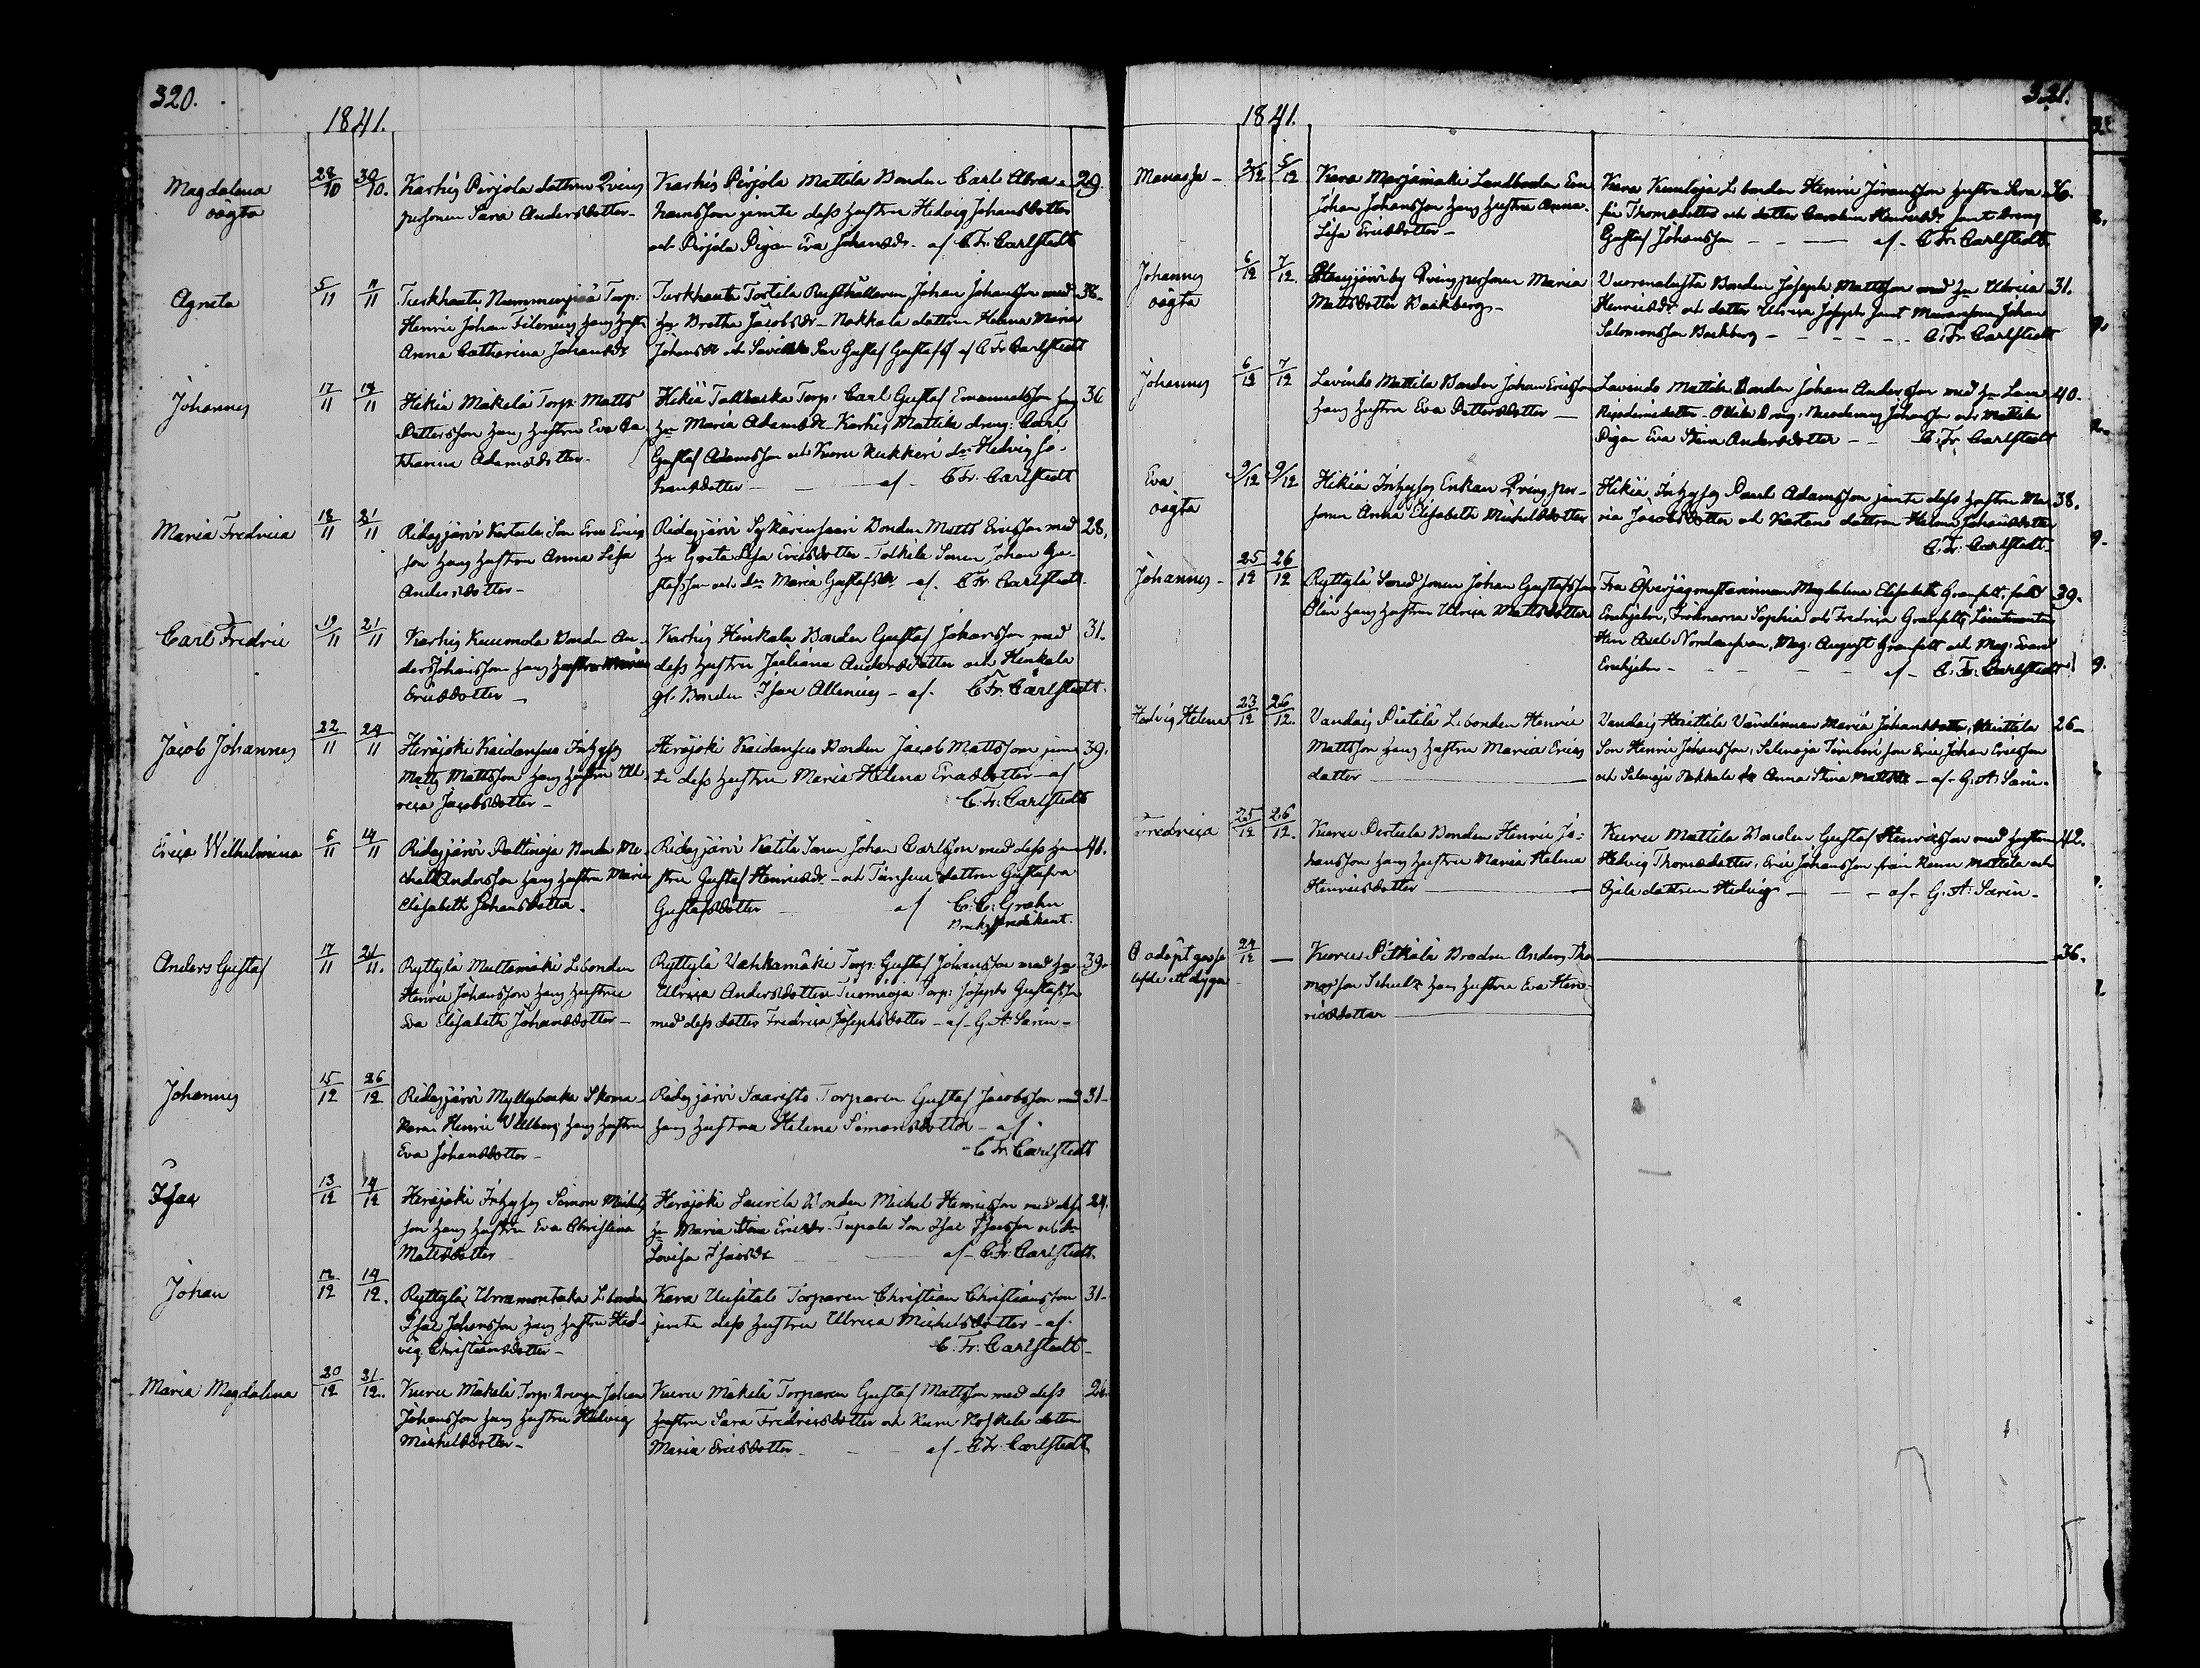 320.
1841.
Magdalena
oägta
28/10 30/10. Karhis Pirjola dottren Qvins
personen Sara Andersdotter-
Karhis Pirjola Mattila Bonden Carl Abra- 29.
hamsson jemte dess hustru Hedvig Johansdotter
och Pirjola Pigan Eva Johansdr. af C Fr. Carlstedt
Agneta
5/11 11/11 Turkhauta Nummenpää Torp:
Henric Johan Filenius hans hustru
Anna Catharina Johansdr
Turkhauta Tortila Rusthållaren Johan Johansson med 36.
hu Bretha Jacobsdr- Nokkala dottren Helena Maria
Johansdr och Gustaf Gustafss af C Fr Carlstedt
Johannes
17/11 19/11 Hikiä Mäkelä Torp: Matts
Pettersson hans hustru Eva Ca-
tharina Adamsdotter-
Hikiä Torp: Carl Gustaf Emanuelsson hans 36
hu Maria Adamsdr- Karhis Mattila dreng: Carl
Gustaf Adamsson och Kuru Kukkeri dr Hedvig Jo-
hansdotter - af - C Fr. Carlstedt
Maria Fredrica
18/11 21/11 Ridasjärvi Son Eric Erics
son hans hustru Anna Lisa
Andersdotter-
Ridasjärvi Sykäriensaari Bonden Matts Ericsson med 28.
hu Greta Lisa Ericsdotter- Sonen Johan Gu-
stafsson och dr Maria Gustafsdr - af. C Fr. Carlstedt.
Carl Fredric
19/11 21/11 Karhis Kuumola Bonden An-
ders Johansson hans hustru Maria
Ericsdotter-
Karhis Heinkala Bonden Gustaf Johansson med 31.
dess hustru Juliana Andersdotter och Heinkala
gl. Bonden Isac Allenius - af. C Fr. Carlstedt.
Jacob Johannes
22/11 24/11 Herajoki Kaidansuu Inhyses
Matts Mattsson hans hustru Ul-
rica Jacobsdotter-
Herajoki Kaidansuu Bonden Jacob Mattsson jem- 39.
te dess hustru Maria Helena Ericsdotter - af
C. Fr. Carlstedt
Erica Wilhelmina
6/11 14/11 Ridasjärvi Pattinoja Bonden Mi-
chel Andersson hans hustru Maria
Elisabeth Johansdotter.
Ridasjärvi Katila Sonen Johan Carlsson med dess hu- 41.
stru Gustaf Henricsdr - och dottren Gustafva
Gustafsdotter - af C. C. Grahn
Bruks predikant.
Anders Gustaf
17/11 21/11. Ryttylä Multamäki L.bonden
Henric Johansson hans hustru
Eva Elisabeth Johansdotter-
Ryttylä Vahkamäki Torp: Gustaf Johansson med hu 39.
Ulrica Andersdotter Tuomioja Torp: Joseph Gustafsson
med dess dotter Fredrica Josephsdotter - af - G. A. Sarin -
Johannes
15/12 26/12 Ridasjärvi Myllybacka Skoma-
karen Henric hans hustru
Eva Johansdotter-
Ridasjärvi Saaristo Torparen Gustaf Jacobsson med 31-
hans hustru Helena Simonsdotter - af -
C Fr. Carlstedt
Isac
13/12 14/12 Herajoki Inhyses Simon Michels
son hans hustru Eva Christina
Mattsdotter
Herajoki Laurila Bonden Michel Henricsson med dess 24.
hu Maria Stina Ericsdr. Son Isac Isacsson och dr
Lovisa Isacsdr - af - C Fr. Carlstedt.
Johan
12/12 14/12. Ryttylä L.bonden
Isac Johansson hans hustru Hed-
vig Christiansdotter-
Kara Uusitalo Torparen Christian Christiansson 31-
jemte dess hustru Ulrica Michelsdotter - af.
C. Fr. Carlstedt-
Maria Magdalena
20/12 21/12. Kuru Mäkelä Torp: Johan
Johansson hans hustru Hedvig
Michelsdotter-
Kuru Mäkelä Torparen Gustaf Mattsson med dess 26.
hustru Sara Fredricsdotter och Kuru dottren
Maria Ericsdotter - af - C Fr. Carlstedt
321.
1841.
Manasse -
5/12 Kara Marjamäki Landbonden Eric
Johan Johansson hans hustru Anna
Lisa Ericsdotter-
Kara L.bonden Henric Jöransson hustru Sera- 36.
fia Thomasdotter och dotter Carolina Henricsdr samt Dreng
Gustaf Johansson - - af - C Fr. Carlstedt
Johannes
oägta
6/12 7/12. by Qvinspersonen Maria
Mattsdotter Backberg-
Vuorenalusta Bonden Joseph Mattsson med hu Ulrica 31.
Henricsdr och dotter Ulrica Joseph samt Johan
Salomonsson Backberg - - - C. Fr. Carlstedt
Johannes
6/12 7/12 Lavinto Mattila Bonden Johan Ericsson
hans hustru Eva Pettersdotter -
Lavinto Mattila Bonden Johan Andersson med hu Lena 40.
Dreng: Johansson och Mattila
Pigan Eva Stina Andersdotter - - C. Fr. Carlstedt
Eva
oägta
9/12 9/12 Hikiä Inhyses Enkan Qvinsper-
sonen Anna Elisabeth Michelsdotter
Hikiä Inhyses Paul Adamsson jemte dess hustru Ma- 38.
ria Jacobsdotter och dottren Helena Johansdotter
C. Fr. Carlstedt.
Johannes -
25/12 26/12 Ryttylä Smedssonen Johan Gustafsson
Olin hans hustru Ulrica Mattsdotter
Fru Öfverjägmästarinnan Magdalena Elisabeth Granfelt född 39.
Enehjelm, Fröknarna Sophia och Fredrica Granfelt, Lieutnanten
Herr Axel Nordenswan, Mag: August Granfelt och Mag:
Enehjelm - - - af - C. Fr. Carlstedt
Hedvig Helena
23/12 26/12. Vandais Pietilä L.bonden Henric
Mattsson hans hustru Maria Erics
dotter
Vandais Heittilä Värdinnan Maria Johansdotter, Heittilä 26-
Son Henric Johansson, Salmoja Son Eric Johan Ericsson
och Salmoja Nokkala dr Anna Stina Mattsdr - af - G. A. Sarin.
Fredrica
25/12 26/12. Kuru Perttula Bonden Henric Jo-
hansson hans hustru Maria Helena
Henricsdotter
Kuru Mattila Bonden Gustaf Henricsson med hustrun 42.
Hedvig Thomasdotter, Eric Johansson från Kuru Mattila och
dottren Hedvig - - - af - G. A. Sarin -
Odöpt gosse
lefde ett dygn -
24/12 - Kuru Pitkälä Brodren Anders Tho
masson Schultz hans hustru Eva Hen-
ricsdotter
36.